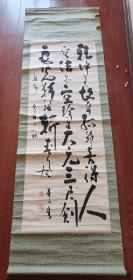 乾坤無地卓孤筇喜得人
空法亦空珍重大元三尺劍
電光影裏斬春風